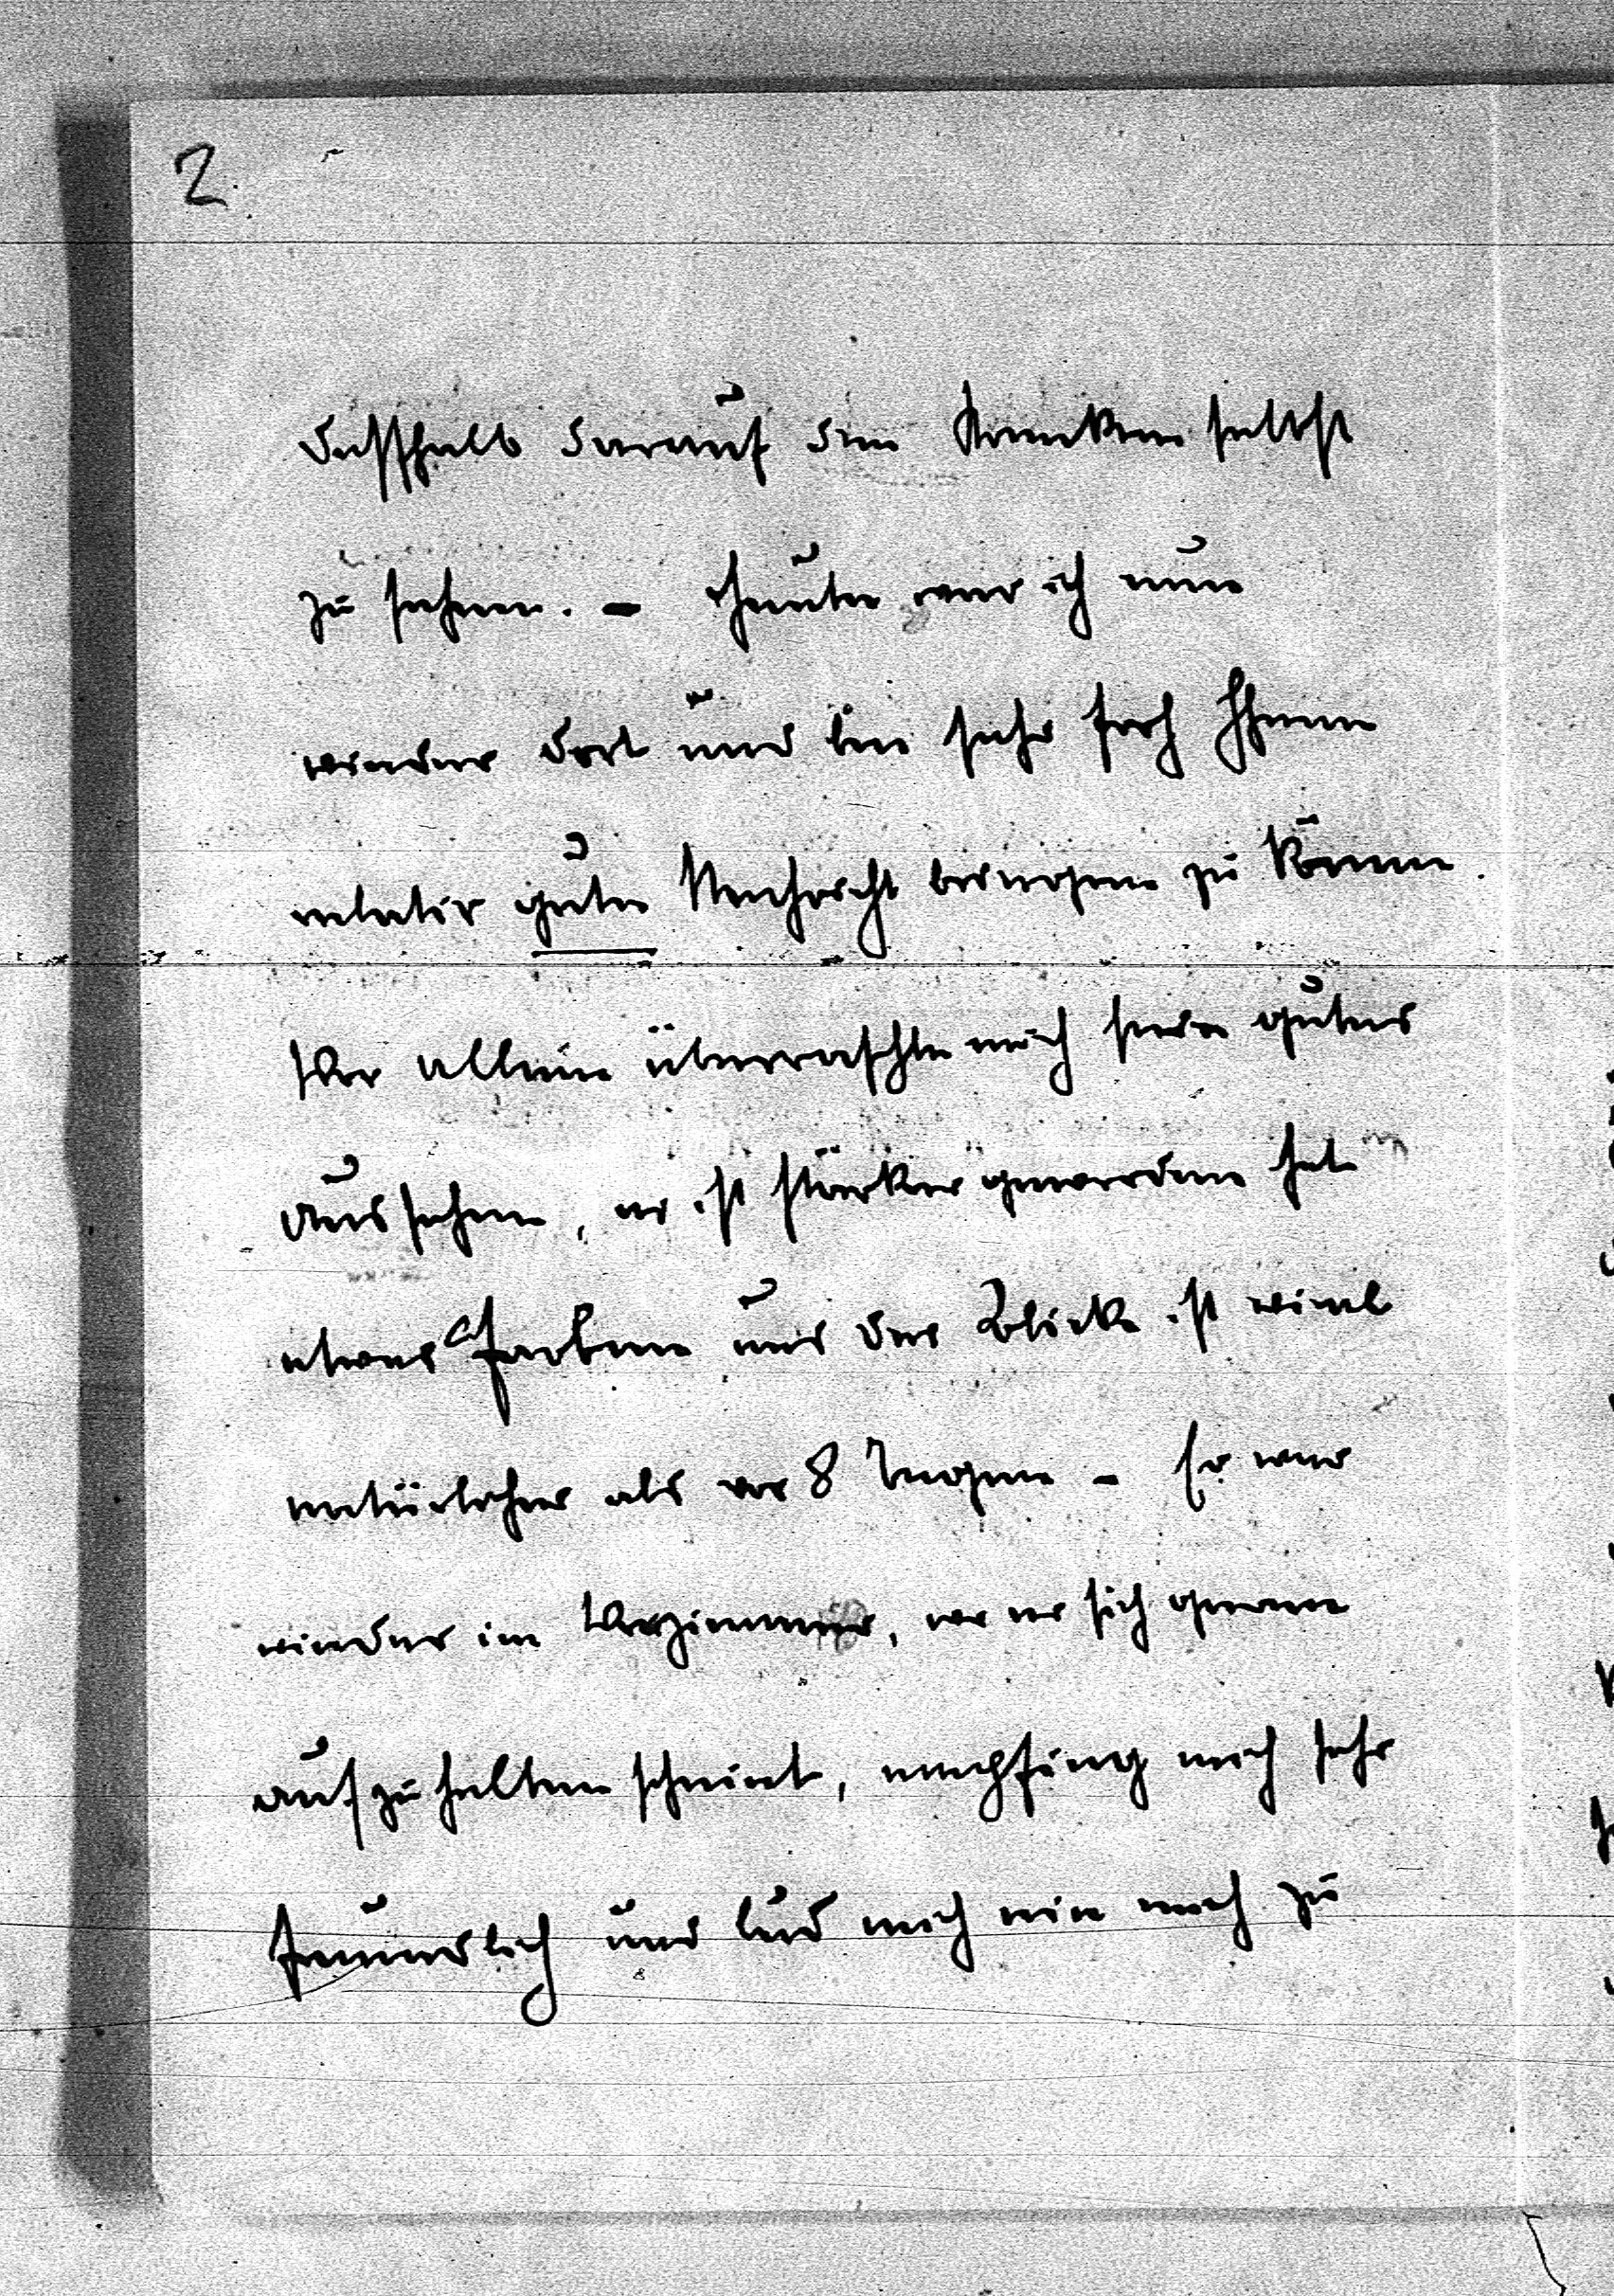 2.
deßhalb darauf den Kranken selbst
zu sehen. – Heute war ich nun
wieder dort und bin sehr froh Ihnen
relativ gute Nachricht bringen zu können.
Vor allem überraschte mich sein gutes
Aussehen, er ist stärker geworden hat
etwas Farben und der Blick ist viel
natürlicher als vor 8 Tagen – Er war
wieder im Vorzimmer, wo er sich gerne
aufzuhalten scheint, empfing mich sehr
freundlich und lud mich ein nach zu